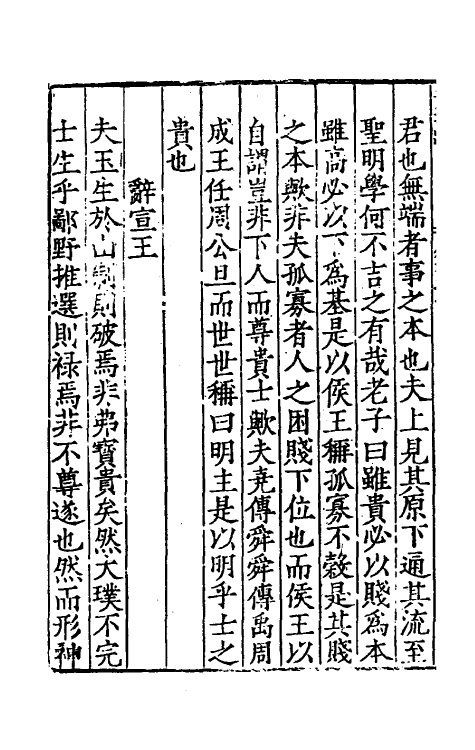 君也無端者事之本也夫上見其原下通其流至
聖明學何不吉之有哉老子曰雖貴必以賤為本
雖高必以下為基是以侯王稱孤寡不榖是其賤
之本歟非夫孤寡者人之困賤下位也而侯王以
自謂豈非下人而尊貴士歟夫堯傳舜舜傳禹周
成王任周公旦而世世稱曰明主是以明乎士之
貴也
辭宣王
夫玉生於山制則破焉非弗寶貴矣然大璞不完
士生乎鄙野推選則祿焉非不尊遂也然而形神